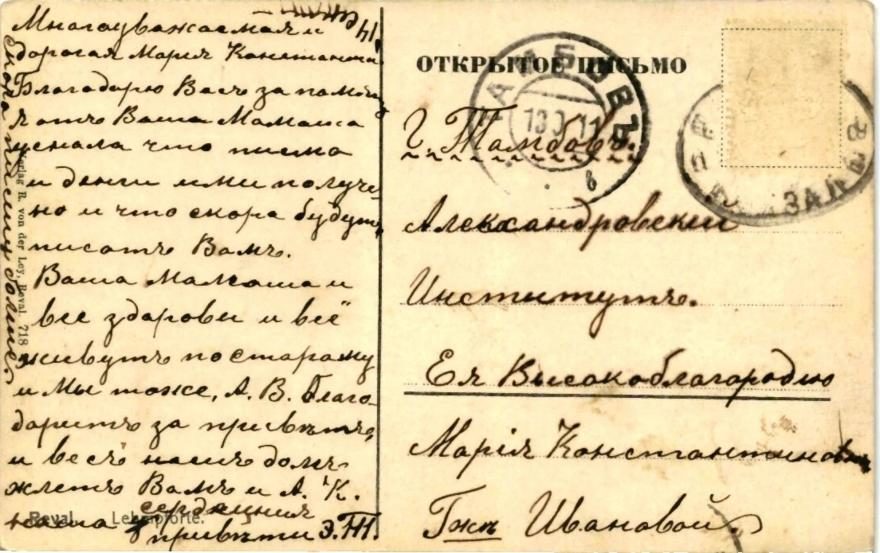 14
Многоуважаемая и
дорогая Мария Константин.
Благодарю Васъ за память
Ваша Мамаша
узнала что писма
и денги ими получе-
но и что скора будутъ
писать Вамъ.
Ваша Мамаша и
все здарови и всё
живутъ по старому
и мы тоже, А. В. благо-
даритъ за приветъ,
и весь нашъ домъ
жлетъ Вамъ и А. К.
наша сердечния
привети Э. Ш.
скора напишу болше
Verlag R. von der Ley, Reval. 718
Reval. Lehmpforte.
ОТКРЫТОЕ ПИСЬМО
ТАМБОВЪ
13 11
в
ВОКЗАЛЪ
Г. Тамбовъ.
Александровский
Институтъ.
Ея Высокоблагородию
Марія Константиновн
Гжѣ Ивановой